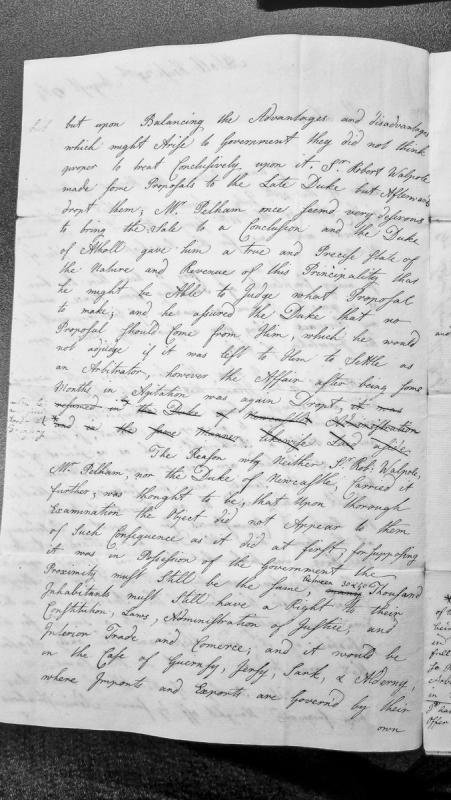 but upon Balancing the Advantages and disadvantages
which might Arise to Government they did not think
proper to treat Conclusively upon it. Sr. Robert Walpole
made some Proposals to the Late Duke but Afterwards
dropt them; Mr. Pelham once seemd very desirous
to bring the Sale to a Conclusion and the Duke
of Atholl gave him a true and Precise State of
the Nature and Revenue of this Principality that
he might be Able to Judge what Proposal
to make; and he assured the Duke that no
Proposal should Come from Him, which he would
not adjudge if it was left to Him to Settle as
an Arbitrator, however the Affair after being some
Months in Agitation was again Dropt, it was
resumed in the Duke of Newcastles Administration
and in the same manner likewise Laid aside.
The Reason why Neither Sr. Robt. Walpole,
Mr. Pelham, nor the Duke of Newcastle, Carried it
further, was thought to be, that Upon thorough
Examination the Object did not Appear to them
of Such Consequence as it did at first; for supposing
it was in Possession of the Government the
Proximity must Still be the same, between 30 & 40 Thousand
Inhabitants must Still have a Right to their
Constitution, Laws, Administration of Justice, and
Interior Trade and Comerce; and it would be
in the Case of Guernsy, Jersy, Sark, & Alderny,
where Imports and Exports are Govern'd by their
own